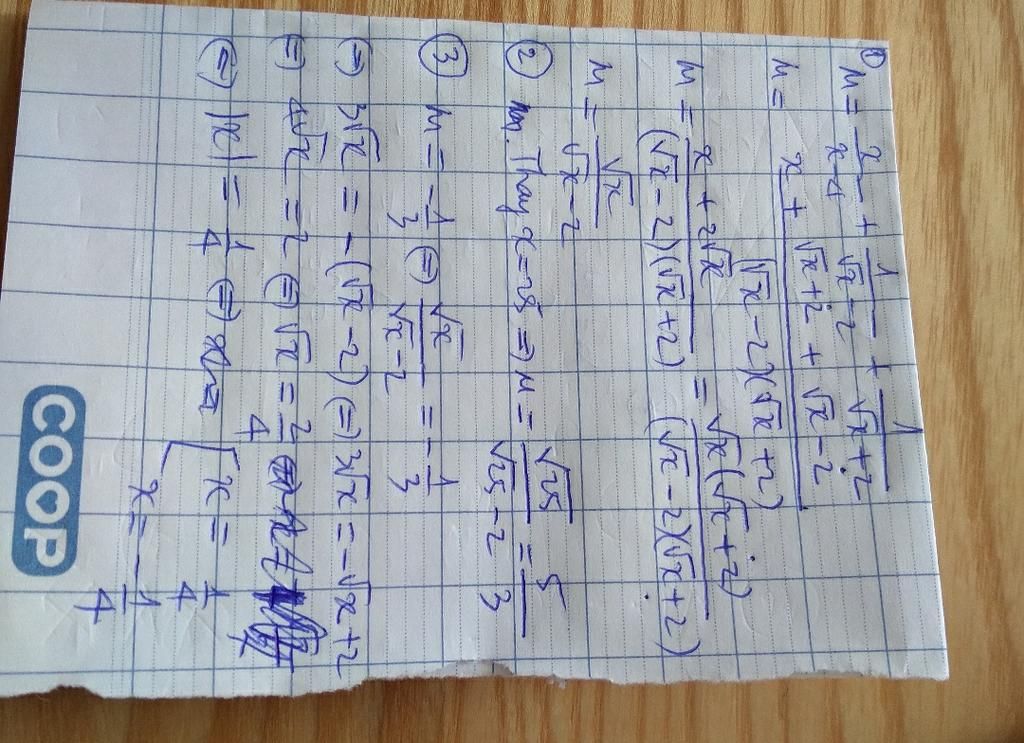 ① M = x/x-4 + 1/√x-2 + 1/√x+2
M = x + √x+2 + √x-2 / (√x-2)(√x+2)
M = x + 2√x / (√x-2)(√x+2) = √x(√x+2) / (√x-2)(√x+2)
M = √x / √x-2
② Thay x=25 ⇒ M = √25 / √25-2 = 5/3
③ M = -1/3 ⇔ √x / √x-2 = -1/3
⇔ 3√x = -(√x-2) ⇔ 3√x = -√x+2
⇔ 4√x = 2 ⇔ √x = 2/4
⇔ |x| = 1/4 ⇔ [ x = 1/4
x = -1/4
COOP